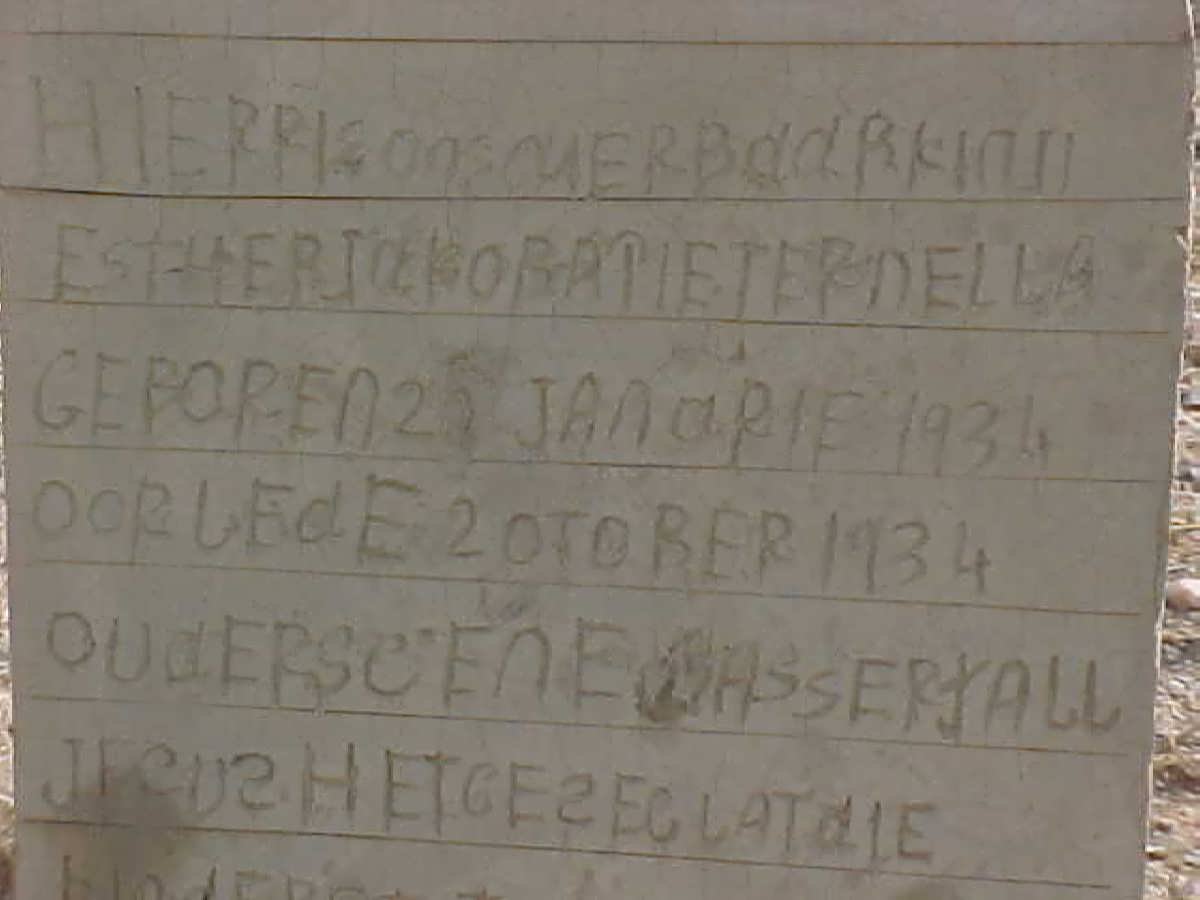 HIERRIS ons cuERBddRKInJI
EstHERJakOBAPIETERnELLA
GEBOREn 21 JAnaRIE 1934
OORLEdE 2 OTOBER 1934
OUdERS C EnE WASSERFALL
JESUS HETGESEG LATdIE